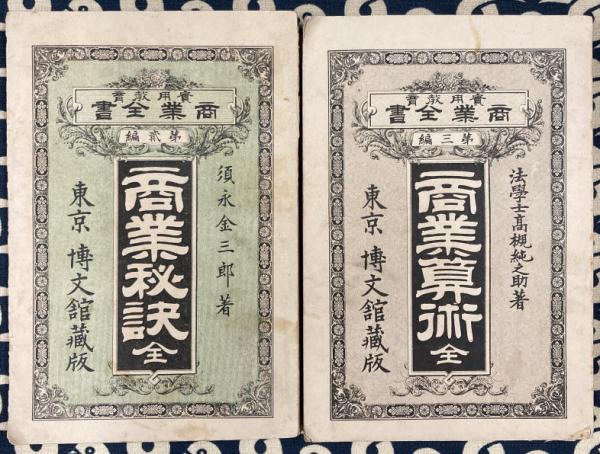 實用敎育
商業全書
第貳編
須永金三郎著
商業秘訣 全
東京 博文館藏版
實用敎育
商業全書
第三編
法學士高槻純之助著
商業算術 全
東京 博文館藏版